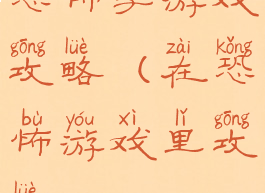 游戏
gōng lüè zài kǒng
攻略（在恐
bù yóu xì lǐ gōng
怖游戏里攻
lüè